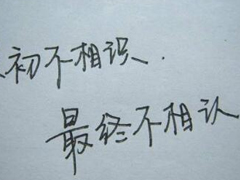 初不相识.
最终不相认